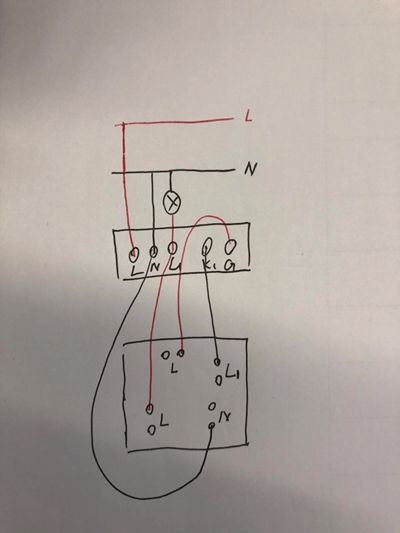 L
N
L N L1 K1 G
L L1
L N